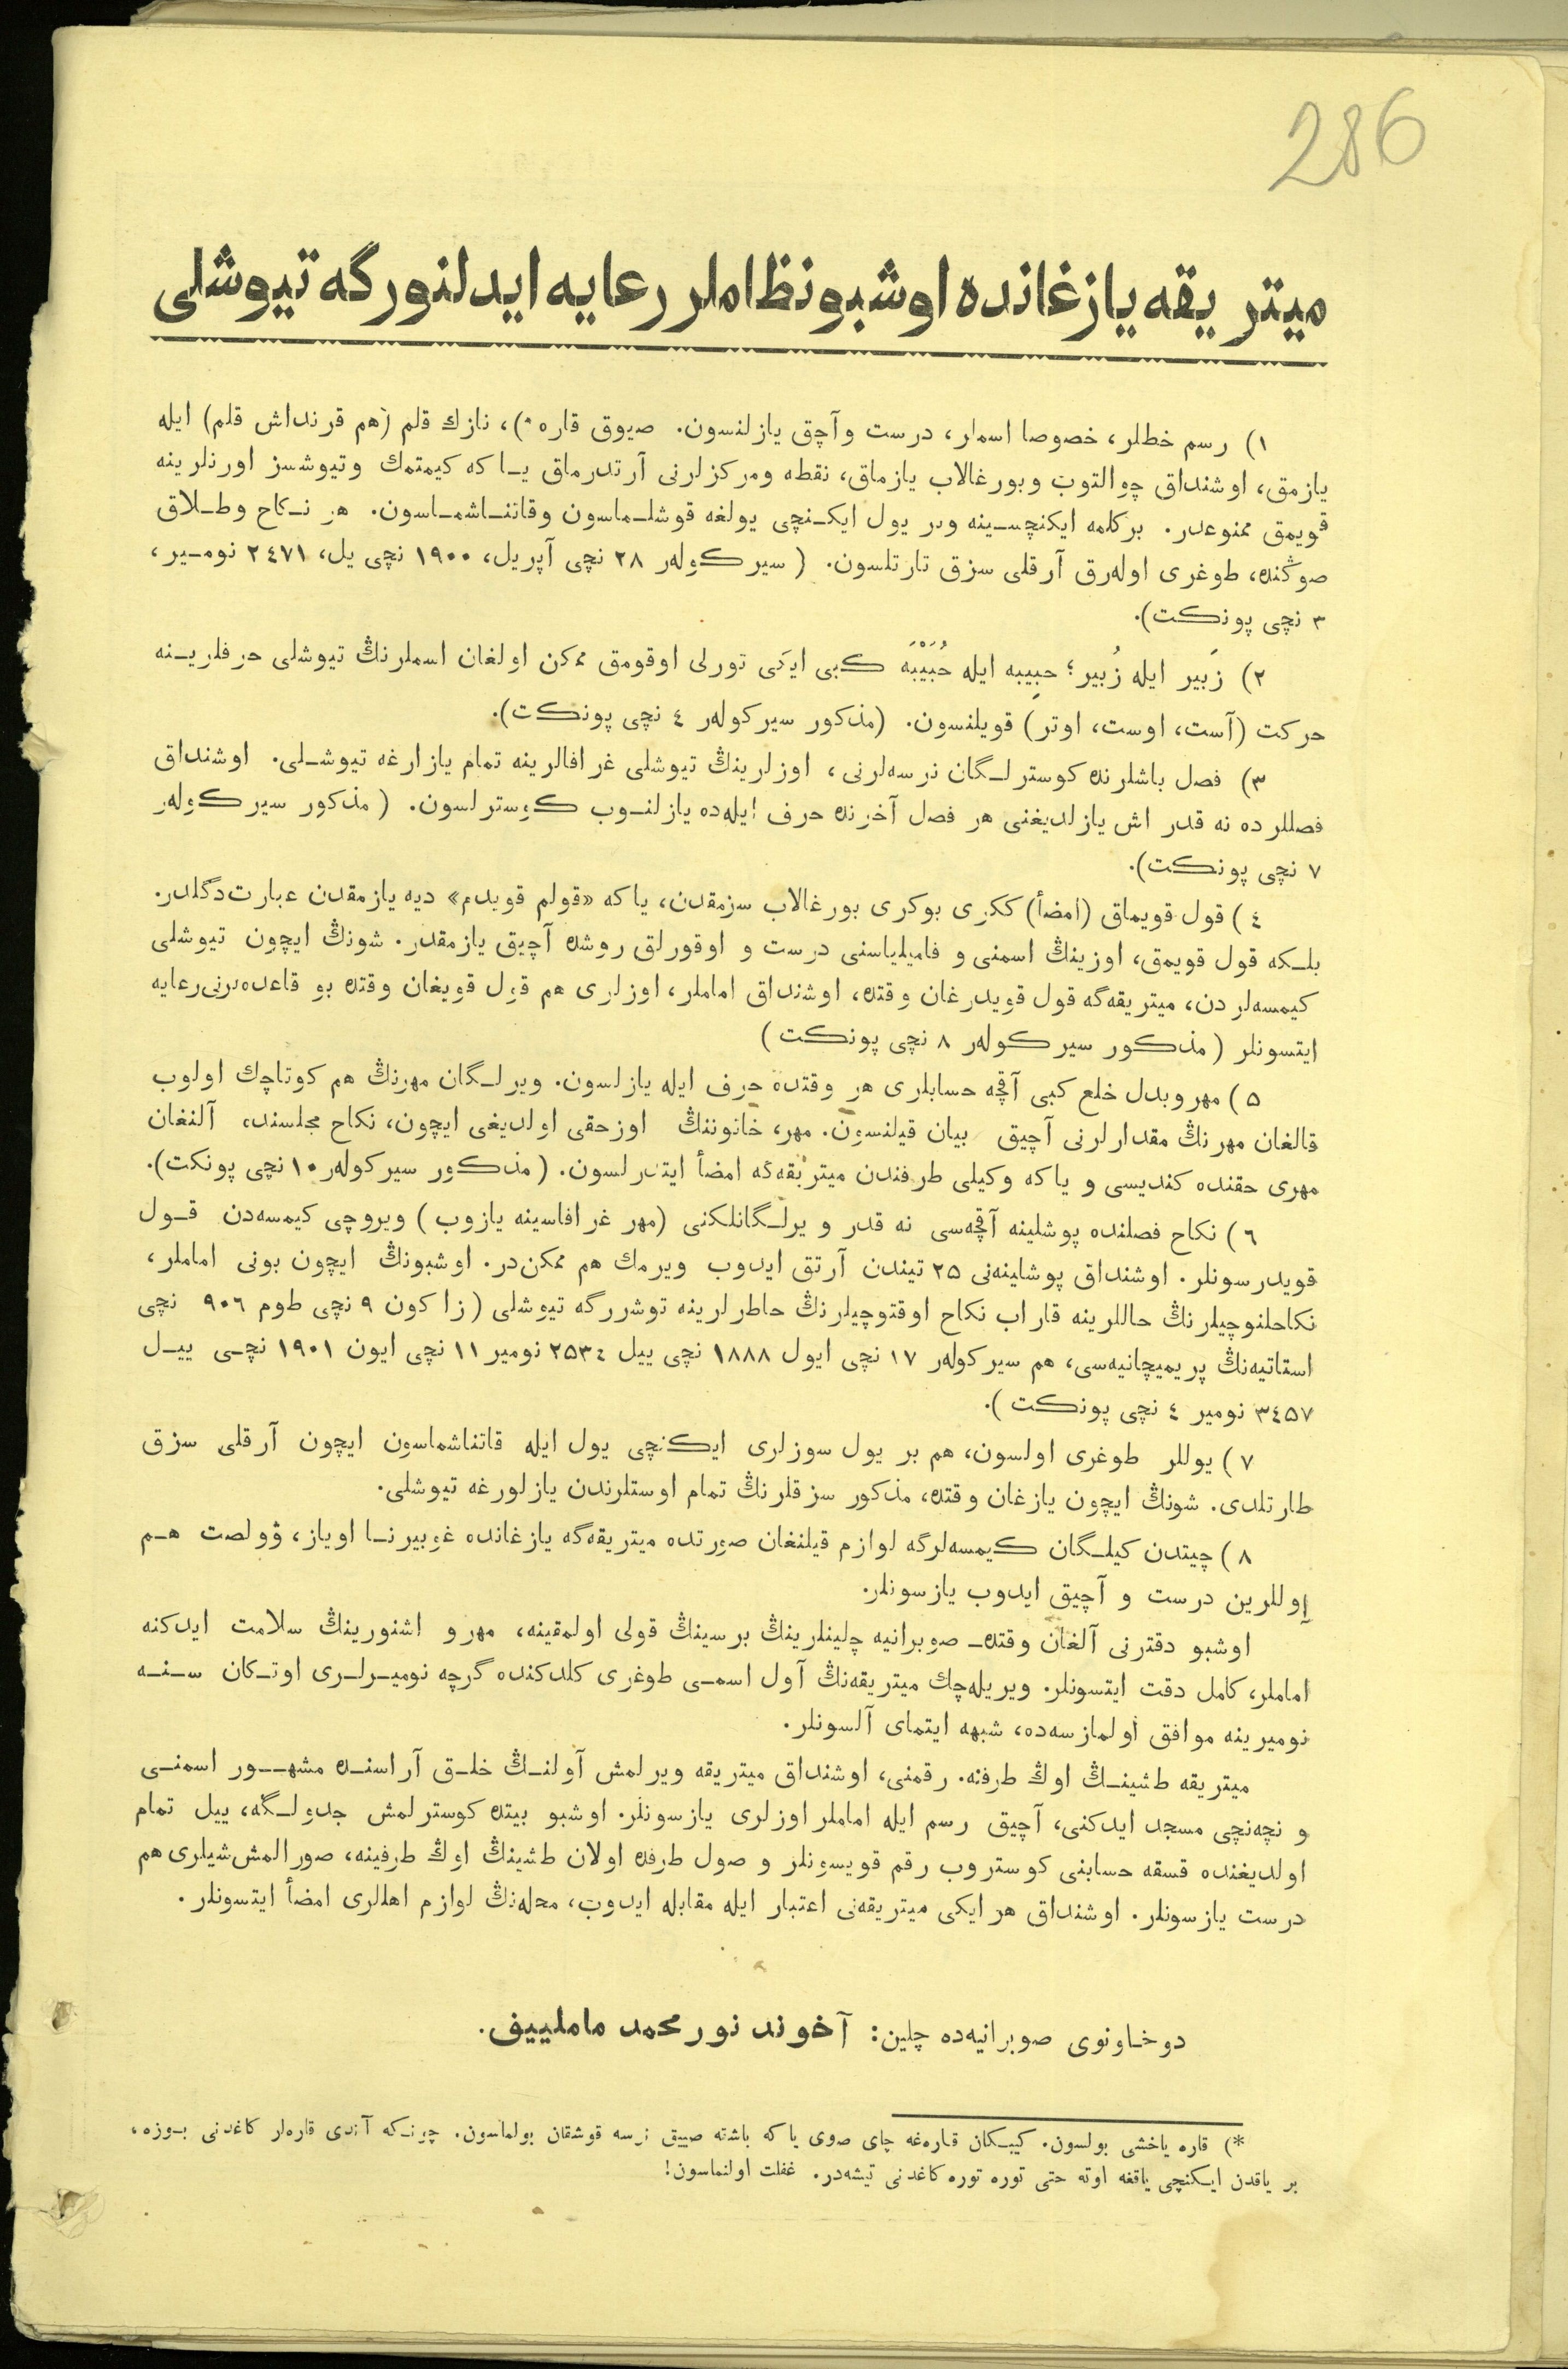 286
ميتريقه يازغانده اوشبو نظاملر رعايه ايدلنورگه تيوشلى
١) رسم خطلر، خصوصا اسملر، درست وآچق يازلنسون. صيوق قاره *)، نازك قلم (هم قرنداش قلم) ايله
يازمق، اوشنداق چوالتوب وبورغالاب يازماق، نقطه ومركزلرنى آرتدرماق يـا كه كيمتمك وتيوشسز اورنلرينه
قويمق ممنوعدر. بركلمه ايكنچسـينه وبر يول ايكـنچى يولغه قوشلـماسون وقاتنـاشمـاسون. هر نـكاح وطـلاق
صوڭنده، طوغرى اولەرق آرقلى سزق تارتلسون. (سيركولەر ٢٨ نچى آپريل، ١٩٠٠ نچى يل، ٢٤٧١ نومـير،
٣ نچى پونكت).
٢) زَبير ايله زُبير؛ حبِيبه ايله حُبَيْبَه كبى ايكى تورلى اوقومق ممكن اولغان اسملرنڭ تيوشلى حرفلريـنه
حركت (آست، اوست، اوتر) قويلنسون. (مذكور سيركولەر ٤ نچى پونكت).
٣) فصل باشلرنده كوسترلـگان نرسەلرنى، اوزلرينڭ تيوشلى غرافالرينه تمام يازارغه تيوشـلى. اوشنداق
فصللرده نه قدر اش يازلديغنى هر فصل آخرنده حرف ايلەده يازلنـوب كوسترلسون. (مذكور سيركولەر
٧ نچى پونكت).
٤) قول قويماق (امضأ) ككرى بوكرى بورغالاب سزمقدن، ياكه «قولم قويدم» ديه يازمقدن عبارت دگلدر.
بلـكه قول قويمق، اوزينڭ اسمنى و فاميلياسنى درست و اوقورلق روشده آچيق يازمقدر. شونڭ ايچون تيوشلى
كيمسەلردن، ميتريقەگه قول قويدرغان وقتده، اوشنداق اماملر، اوزلرى هم قول قويغان وقتده بو قاعدەرنى رعايه
ايتسونلر (مذكور سيركولەر ٨ نچى پونكت)
٥) مهر وبدل خلع كبى آقچه حسابلرى هر وقتده حرف ايله يازلسون. ويرلـگان مهرنڭ هم كوتاچك اولوب
قالغان مهرنڭ مقدارلرنى آچيق بيان قيلنسون. مهر، خاتوننڭ اوزحقى اولديغى ايچون، نكاح مجلسنده آلنغان
مهرى حقنده كنديسى و ياكه وكيلى طرفندن ميتريقەگه امضأ ايتدرلسون. (مذكور سيركولەر ١٠ نچى پونكت).
٦) نكاح فصلنده پوشلينه آقچەسى نه قدر ويرلـگانلكنى (مهر غرافاسينه يازوب) ويروچى كيمسەدن قـول
قويدرسونلر. اوشنداق پوشلينەنى ٢٥ تيندن آرتق ايدوب ويرمك هم ممكن در. اوشبونڭ ايچون بونى اماملر،
نكاحلنوچيلرنڭ حاللرينه قاراب نكاح اوقتوچيلرنڭ خاطرلرينه توشررگه تيوشلى (زاكون ٩ نچى طوم ٩٠٦ نچى
استاتيەنڭ پريميچانيەسى، هم سيركولەر ١٧ نچى ايول ١٨٨٨ نچى ييل ٢٥٣٤ نومير ١١ نچى ايون ١٩٠١ نچـى ييـل
٣٤٥٧ نومير ٤ نچى پونكت).
٧) يوللر طوغرى اولسون، هم بر يول سوزلرى ايكنچى يول ايله قاتناشماسون ايچون آرقلى سزق
طارتلدى. شونڭ ايچون يازغان وقتده، مذكور سزقلرنڭ تمام اوستلرندن يازلورغه تيوشلى.
٨) چيتدن كيلـگان كيمسەلرگه لوازم قيلنغان صورتده ميتريقەگه يازغانده غوبيرنـا اوياز، ۋولصت هـم
آوللرين درست و آچيق ايدوب يازسونلر.
اوشبو دفترنى آلغان وقتده صوبرانيه چلينلرينڭ برسينڭ قولى اولمقينه، مهر و اشنورينڭ سلامت ايدكنه
اماملر، كامل دقت ايتسونلر. ويريلەچك ميتريقەنڭ آول اسمـى طوغرى كلدكنده گرچه نوميـرلـرى اوتـكان سـنـه
نوميرينه موافق اولمازسەده، شبهه ايتماى آلسونلر.
ميتريقه طشينـڭ اوڭ طرفنه. رقمنى، اوشنداق ميتريقه ويرلمش آولنـڭ خلـق آراسنـده مشهـور اسمنـى
و نچەنچى مسجد ايدكنى، آچيق رسم ايله اماملر اوزلرى يازسونلر. اوشبو بيتده كوسترلمش جدولـگه، ييل تمام
اولديغنده قسقه حسابنى كوستروب رقم قويسونلر و صول طرفده اولان طشينڭ اوڭ طرفينه، صورالمش شيلرى هم
درست يازسونلر. اوشنداق هر ايكى ميتريقەنى اعتبار ايله مقابله ايدوب، محلەنڭ لوازم اهللرى امضأ ايتسونلر.
دوخاونوى صوبرانيەده چلين: آخوند نورمحمد ماملييف.
*) قاره ياخشى بولسون. كيبـكان قارەغه چاى صوى ياكه باشته صييق نرسه قوشقان بولماسون. چونـكه آندى قارەلر كاغدنى بـوزه،
بر ياقدن ايـكنچى ياقغه اوته حتى توره توره كاغدنى تيشەدر. غفلت اولنماسون!